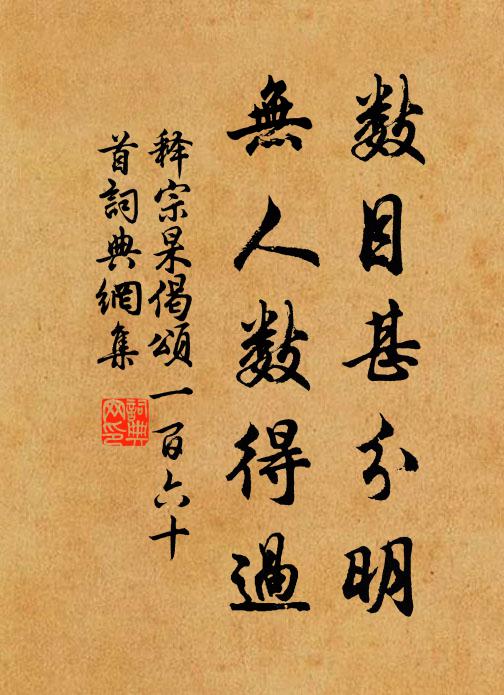 数目甚分明
無人数得過
释宗杲偈頌一百六十
首詞典網集
詞典
网印